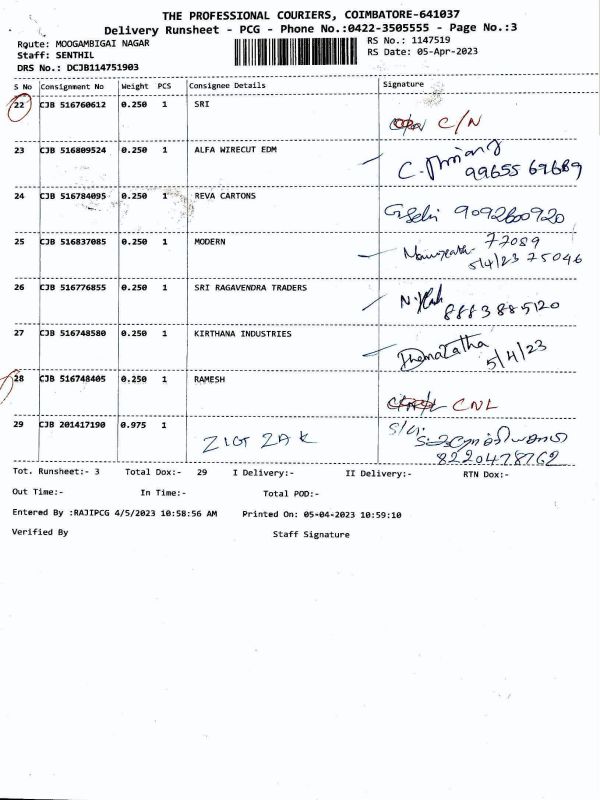 THE PROFESSIONAL COURIERS, COIMBATORE-641037
Delivery Runsheet - PCG - Phone No.:0422-3505555 - Page No.:3
Route: MOOGAMBIGAI NAGAR RS No.: 1147519
Staff: SENTHIL RS Date: 05-Apr-2023
DRS No.: DCJB114751903
S No Consignment No Weight PCS Consignee Details Signature
22 CJB 516760612 0.250 1 SRI
C/N
23 CJB 516809524 0.250 1 ALFA WIRECUT EDM
99655 69689
24 CJB 516784095 0.250 1 REVA CARTONS
9092600920
25 CJB 516837085 0.250 1 MODERN
77089
5/4/23 75046
26 CJB 516776855 0.250 1 SRI RAGAVENDRA TRADERS
8883885120
27 CJB 516748580 0.250 1 KIRTHANA INDUSTRIES
5/4/23
28 CJB 516748405 0.250 1 RAMESH
CNL
29 CJB 201417190 0.975 1
ZIGT ZAK
8220478762
Tot. Runsheet:- 3 Total Dox:- 29 I Delivery:- II Delivery:- RTN Dox:-
Out Time:- In Time:- Total POD:-
Entered By :RAJIPCG 4/5/2023 10:58:56 AM Printed On: 05-04-2023 10:59:10
Verified By Staff Signature